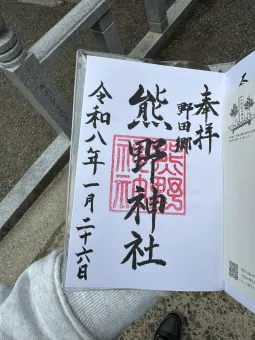 奉拝
野田郷
熊野神社
熊野
神社
令和八年一月二十六日